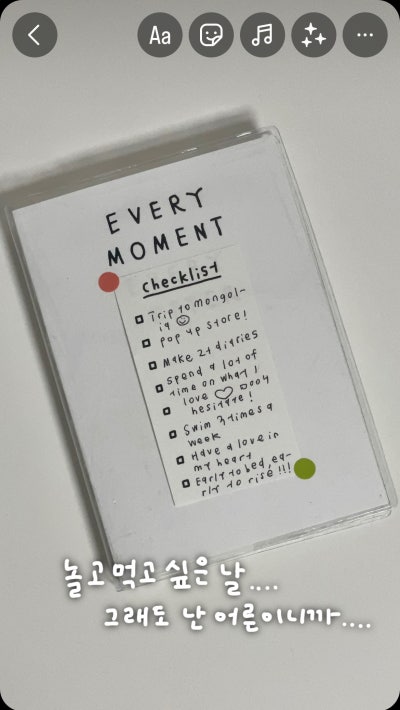 Aa
EVERY
MOMENT
checklist
Trip to mongol-
ia
pop up store!
Make 21 diaries
Spend a lot of
time on what I
love
hesitate!
Swim 3 times a
week
Have a love in
my heart
Early to bed, ea-
rly to rise!!!
놀고 먹고 싶은 날....
그래도 난 어른이니까....